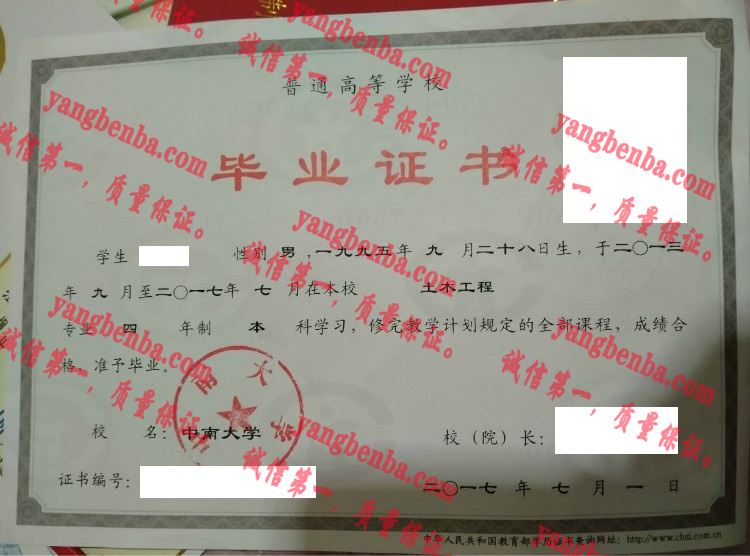 普通高等学校
毕业证书
学生 性别 男 ,一九九五年 九 月二十八日生, 于二〇一三
年 九 月至二〇一七年 七 月在本校 土木工程
专业 四 年制 本 科学习, 修完教学计划规定的全部课程, 成绩合
格, 准予毕业。
中南大学
校 名: 中南大学 校(院)长:
证书编号: 二〇一七 年 七 月 一 日
中华人民共和国教育部学历证书查询网址: http://www.chsi.com.cn
yangbenba.com
诚信第一, 质量保证。
yangbenba.com
诚信第一, 质量保证。
yangbenba.com
诚信第一, 质量保证。
yangbenba.com
诚信第一, 质量保证。
yangbenba.com
诚信第一, 质量保证。
yangbenba.com
诚信第一, 质量保证。
yangbenba.com
诚信第一, 质量保证。
yangbenba.com
诚信第一, 质量保证。